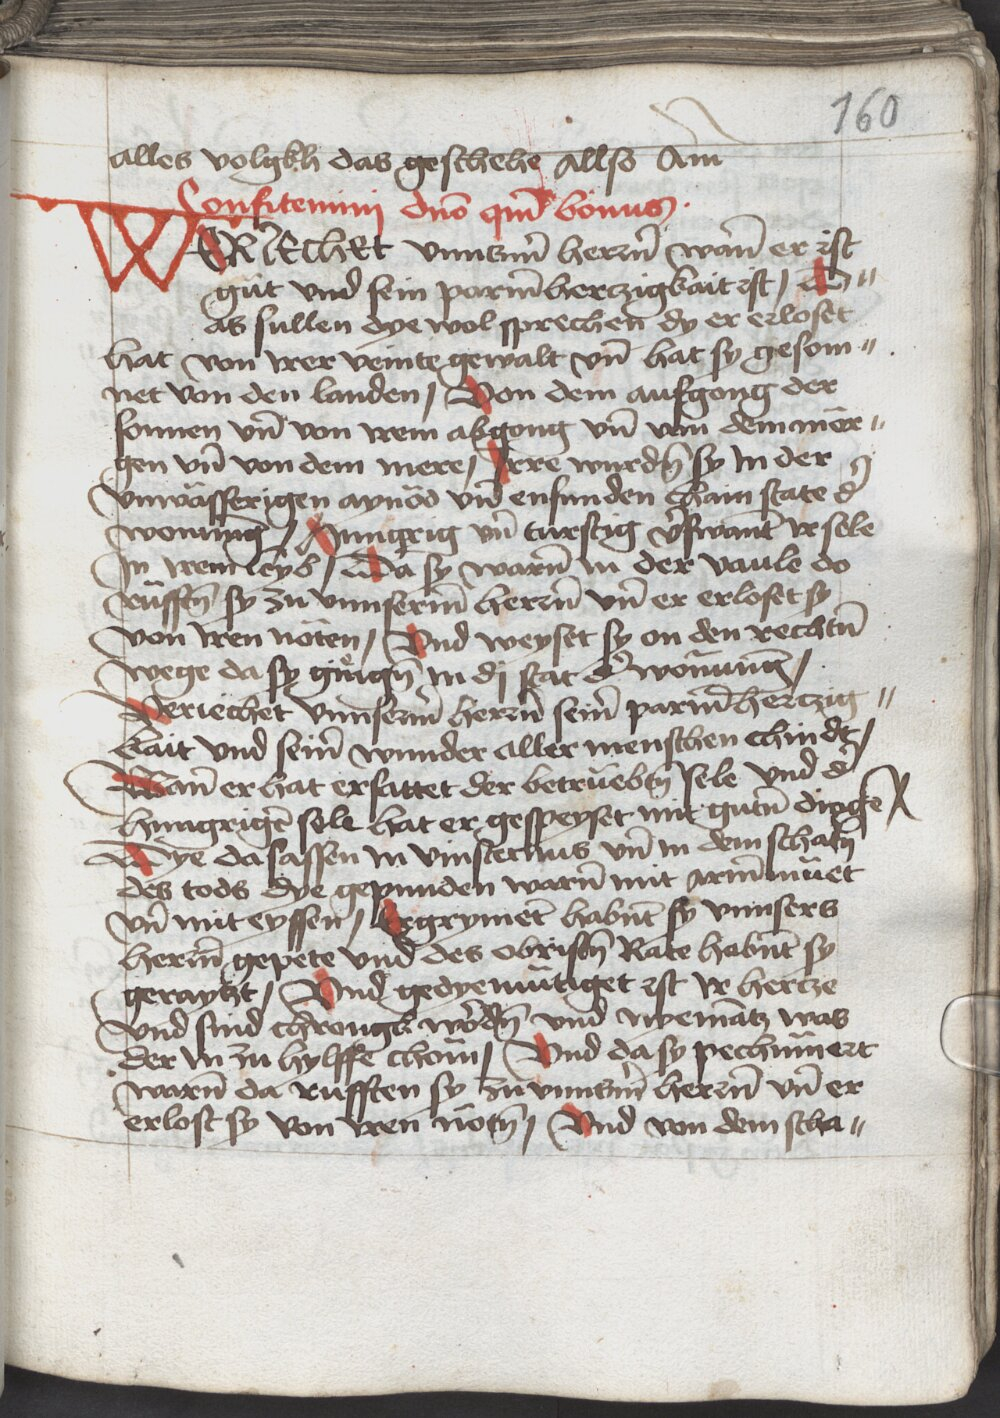 160
alles volgkh das geschehe Allso Am̄
Confitemini dn̄o qm̄ bonus.
WERIECHET vnnsm̄ herrn̄ wan̄ er ist
gůt vnd sein parm̄hertzigkait ist /
as sullen dye wol sprechen dy er erloset
hat von irer veinte gewalt vn̄ hat sy gesom〃
net von den landen / Von dem aufgong der
sonnen vn̄ von irem abgong vn̄ von dem mēr〃
gen vn̄ von dem mere / Irre wurdn̄ sy In der
vnwasserigen aynöd vn̄ enfunden chain state d̄
wonung / Hungrig vn̄ turstig v̄swant ir sele
In irem leyb / Da sy warn̄ in der vaule do
rüfften̄ sy zu vnnserm̄ herrn̄ vn̄ er erloset sy
von iren nöten / Vnd weyset sy on den rechtn̄
wege da sy giengn̄ in dj stat d̄ wonung /
Veriechet vnnserm̄ herrn̄ sein̄ parm̄hertzig〃
kait vnd sein̄ wunder aller menschen chindt /
Wan̄ er hat ersattet der betrüebtn̄ sele vnd d̄
hungrigē sele hat er gespeyset mit gutn̄ dinge
Dye da sassen in vinsternus vn̄ in dem schatn̄
des tods dye gepunden warn̄ mit arm̄müet
vn̄ mit eyssen / Ergrymet habn̄t sy vnnsers
herrn̄ gepete vnd des obristn̄ Rate habn̄t sy
geraytzt / Vnd gedyemütiget ist ir hertze
vnd sind chrongk wordn̄ vnd nyemātz was
der in zu hylffe chom̄ / Vnd da sy pechūmert
warn̄ da rufften sy zu vnnsm̄ herrn̄ vn̄ er
erlost sy von iren nötn̄ / Vnd von dem scha〃